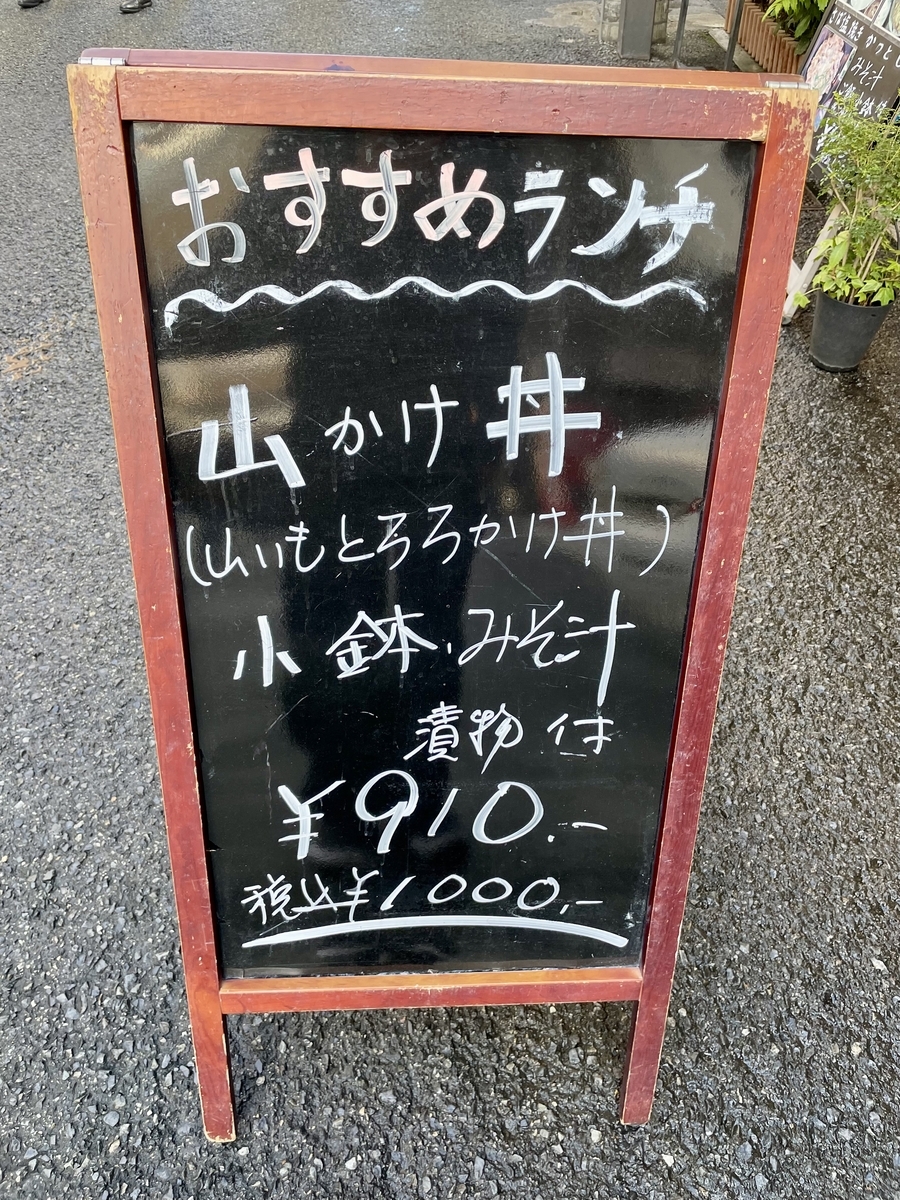 おすすめランチ
山かけ丼
(山いもとろろかけ丼)
小鉢、みそ汁
漬物付
¥910.-
税込¥1000.-
みそ汁